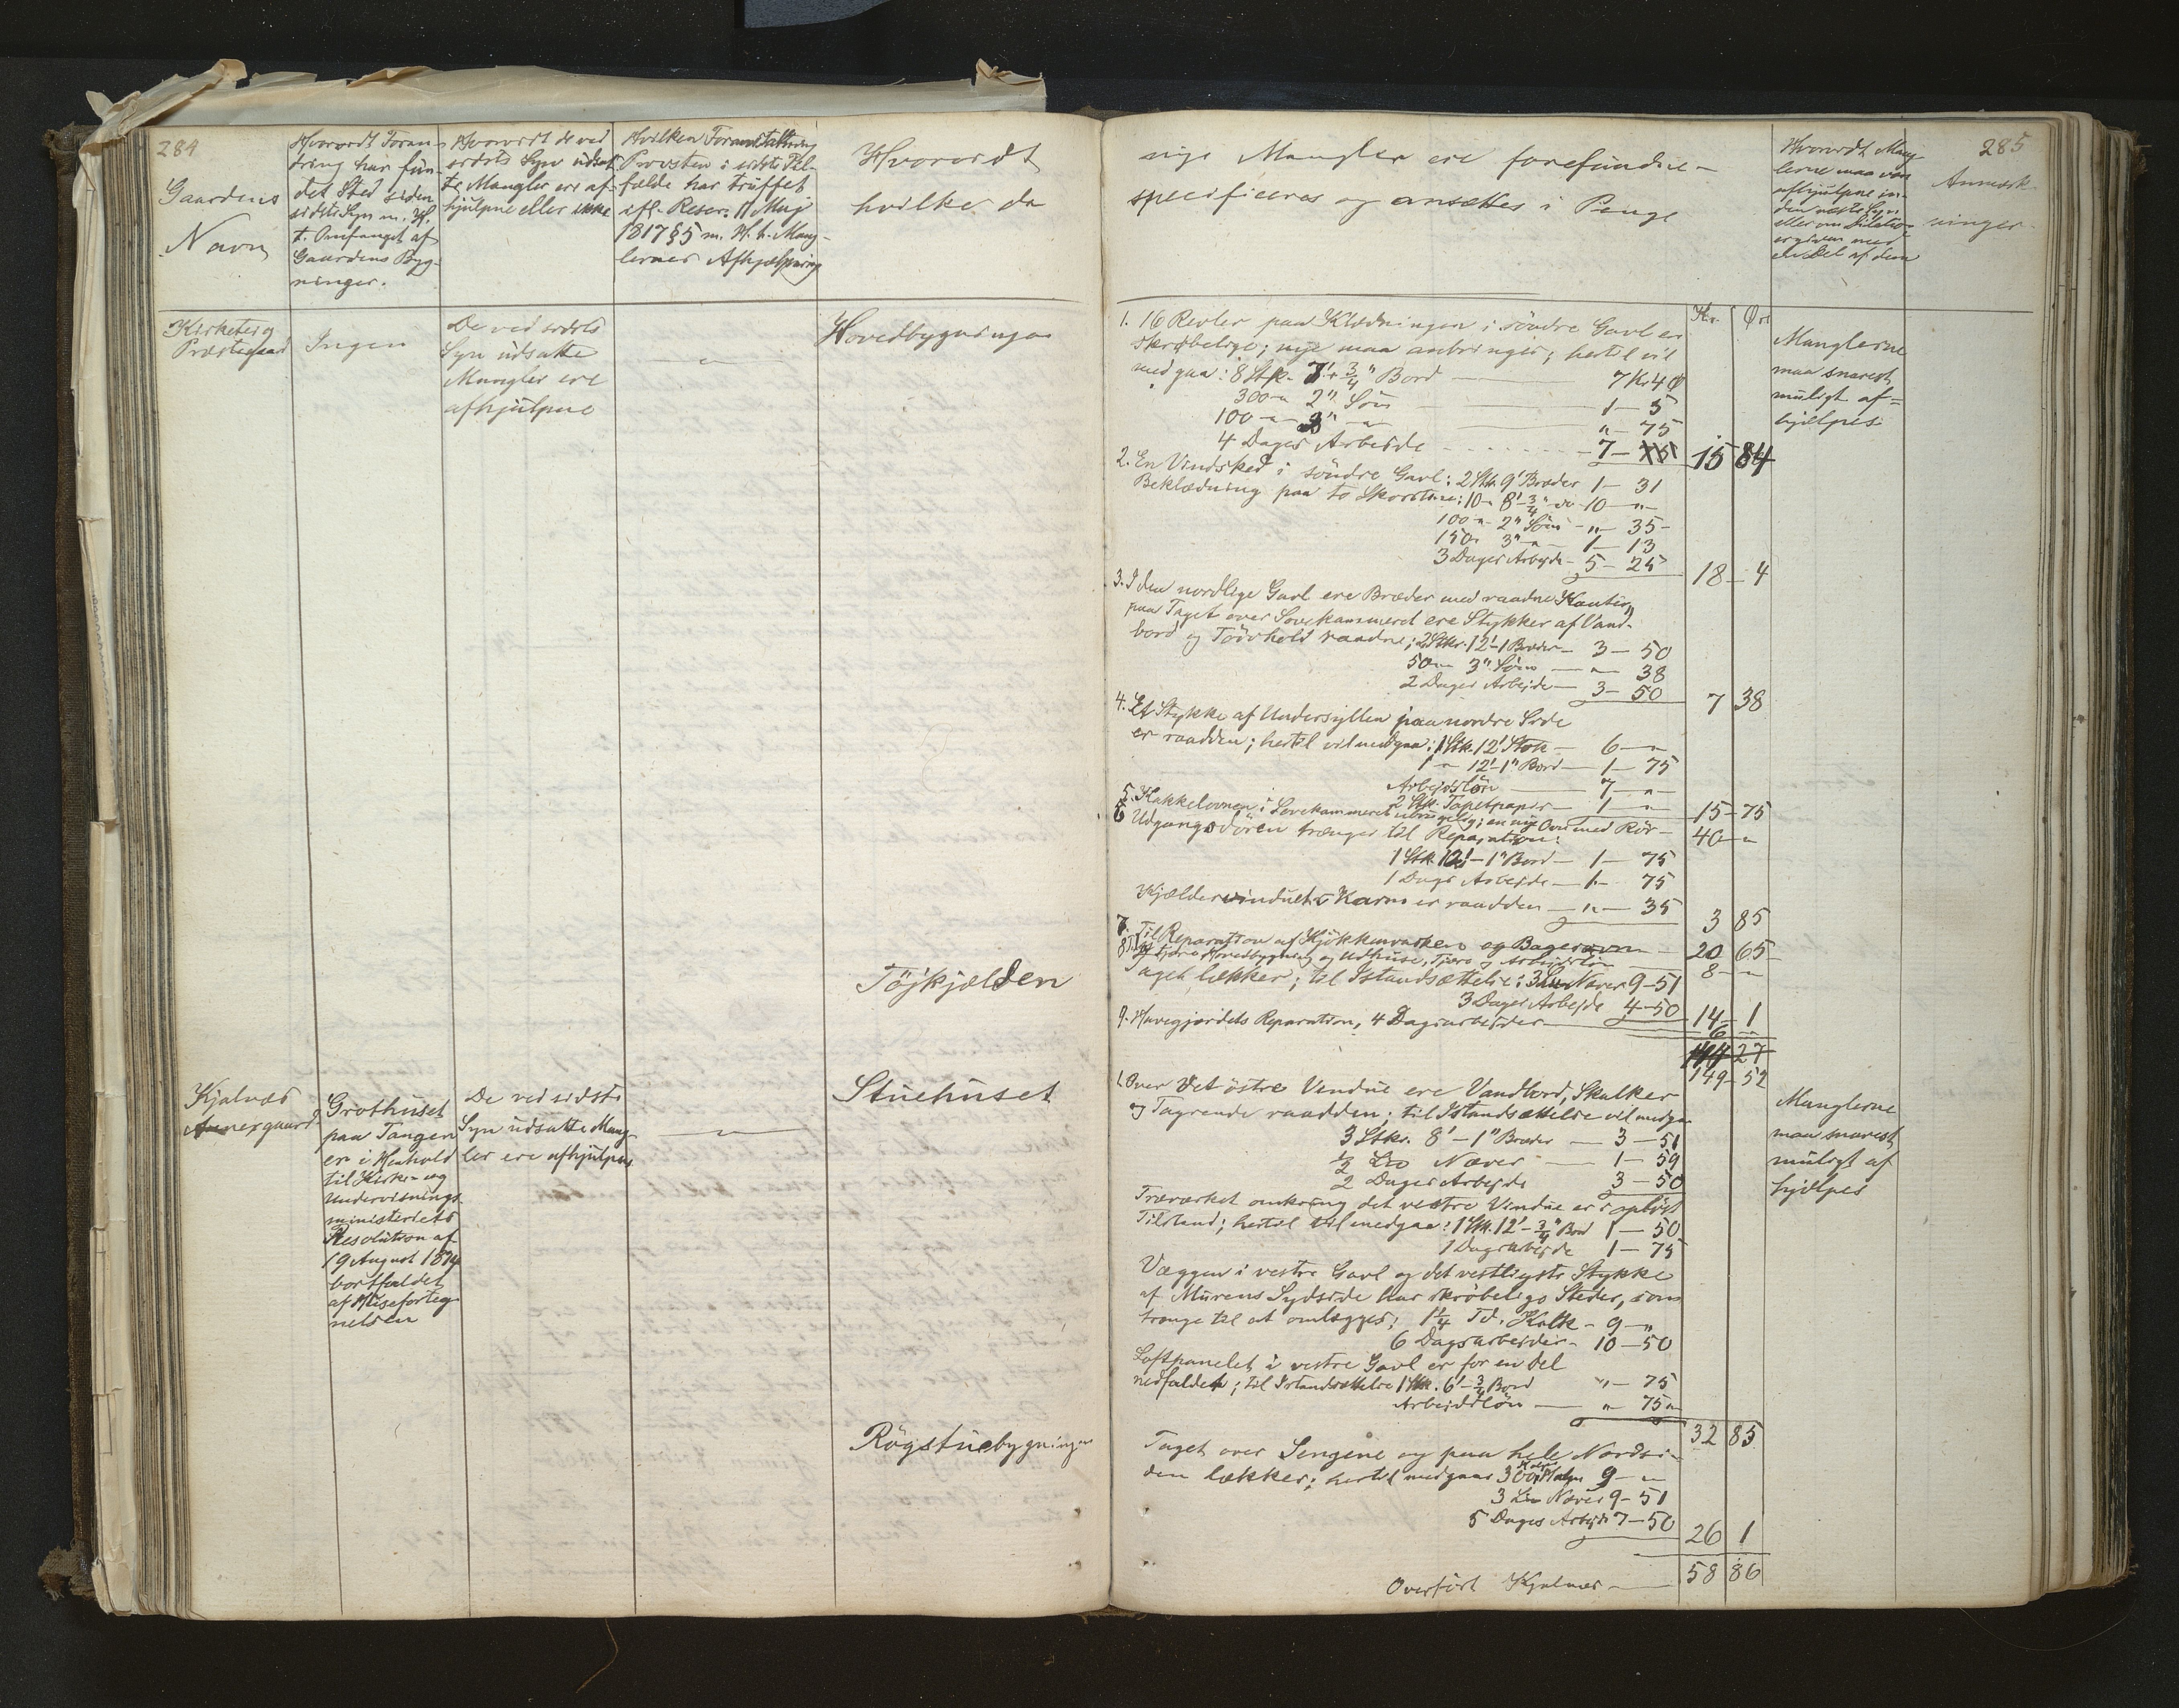 284
Gaardens
Navn
Hvorvidt Foran-
dring har fun-
det Sted siden
sidste Syn m. H.
t. Omfanget af
Gaardens Byg-
ninger.
Hvorvidt de ved
sidste Syn udsat-
te Mangler ere af-
hjulpne eller ikke
Hvilken Foranstaltning
Provsten i sidste Til-
fælde har truffet
ifl. Rescr. 11 Maj
1817 § 5 m. H. t. Mang-
lernes Afhjælpning
Hvorvidt
hvilke da
Kirketeig
Præstegaard
Ingen
De ved sidste
Syn udsatte
Mangler ere
afhjulpne
"
Hovedbygningen
Töjkjælden
Kjelvær
Annexgaard
Grothuset
paa Tangen
er i Henhold
til Kirke- og
Undervisnings-
ministeriets
Resolution af
19 August 1874
bortfaldet
af Huseforteg-
nelsen
De ved sidste
Syn udsatte Mang-
ler ere afhjulpne
"
Stuehuset
Rögstuebygningen
285
nye Mangler ere forefundne –
specificeres og ansættes i Penge
Hvorvidt Mang-
lerne maa være
afhjulpne in-
den næste Syn
eller om Dilation
er given med
en Del af dem
Anmærk-
ninger
Kr. Ør
1. 16 Revler paa Klædningen i söndre Gavl er
skröbelige; nye maa anbringes; hertil vil
medgaa: 8 Stk. 7' + 3/4" Bord — 7 Kr 4 Ø
300 " 2" Söm — 1 — 5
100 " 3" " — " — 75
4 Dages Arbejde - - - - 7 — 15 84
2. En Vindsked i söndre Gavl: 2 Stk 9' Bræder 1 — 31
Beklædning paa to Skorstene: 10 " 8' 3/4" do 10 — "
100 " 2" Söm — " — 35 -
150 " 3" " — 1 — 13
3 Dages Arbejde — 5 — 25 18 — 4
3. I den nordlige Gavl ere Bræder med raadne Kanter,
paa Taget over Sovekammeret ere Stykker af Vand-
bord og Törvhold raadne; 2 Stkr. 12' - 1 Bræder — 3 — 50
50 " 3" Söm — " 38
2 Dages Arbejde — 3 — 50 7 38
4. Et Stykke af Undersyllen paa nordre Side
er raadden; hertil vil medgaa: 1 Stk. 12' Stok — 6 — "
1 " 12' - 1" Bord — 1 — 75
Arbejdslön — 7 — "
2 Stk. Tapetpapir — 1 — " 15 — 75
5. Kakkelovnen i Sovekammeret ubrugelig; en ny Ovn med Rör — 40 — "
6 Udgangsdören trænger til Reparation:
1 Stk 12' - 1" Bord — 1 — 75
1 Dags Arbejde — 1 — 75
Kjældervinduets Karm er raadden — " — 35 3 85
7. Til Reparation af Kjökkenvasken og Bagerovn — 20 65 -
8. Til at tjære Hovedbygning og Udhuse, Tjære og Arbejdslön — 8 — "
Taget lækker; til Istandsættelse: 3 Næver 9 — 51
3 Dages Arbejde 4 — 50 14 — 1
9. Havegjærdets Reparation, 4 Dagsarbejder — 6 —
27
149 — 52
Manglerne
maa snarest
muligt af-
hjælpes
1. Over det östre Vindue ere Vandbord, Skalker
og Tagrende raadden; til Istandsættelse vil medgaa
3 Stkr. 8' — 1" Bræder — 3 — 51
1/2 Næver — 1 — 59
2 Dages Arbejde 3 — 50
Træværket omkring det vestre Vindue er i oplöst
Tilstand; hertil vil medgaa: 1 Stk. 12' — 3/4" Bord 1 — 50
1 Dagsarbejde 1 — 75
Væggen i vestre Gavl og det vestligste Stykke
af Murens Sydside har skröbelige Steder, som
trænge til at omlægges; 1 1/4 Td. Kalk — 9 — "
6 Dagsarbejder — 10 — 50
Loftpanelet i vestre Gavl er for en Del
nedfaldet; til Istandsættelse 1 Stk. 6' — 3/4 Bord " — 75
Arbejdslön — " 75
32 85
Taget over Sengene og paa hele Nordsi-
den lækker; hertil medgaar 300 Halm 9 — "
3 Næver 9 — 51
5 Dages Arbejde 7 — 50 26 1
Overfört Kjelvær — 58 86
Manglerne
maa snarest
muligt af
hjælpes